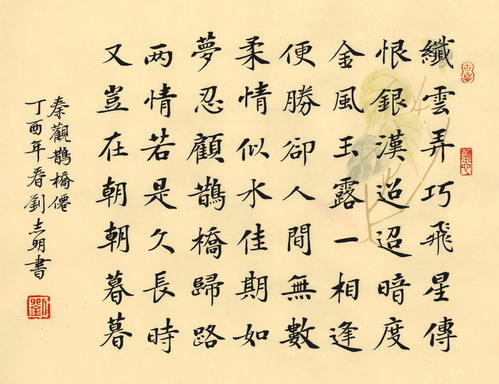 纖雲弄巧飛星傳
恨銀漢迢迢暗度
金風玉露一相逢
便勝卻人間無數
柔情似水佳期如
夢忍顧鵲橋歸路
两情若是久長時
又豈在朝朝暮暮
秦觀鵲橋僊
丁酉年春劉志明書